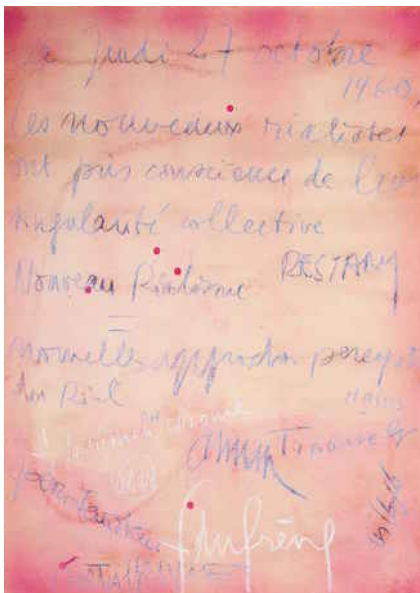 Le Jeudi 27 octobre
1960
Les nouveaux réalistes
ont pris conscience de leur
singularité collective
Nouveau Réalisme RESTANY
=
nouvelles approches perceptives
du Réel
HAINS
Yves le monochrome
Arman Tinguely
Dufrêne